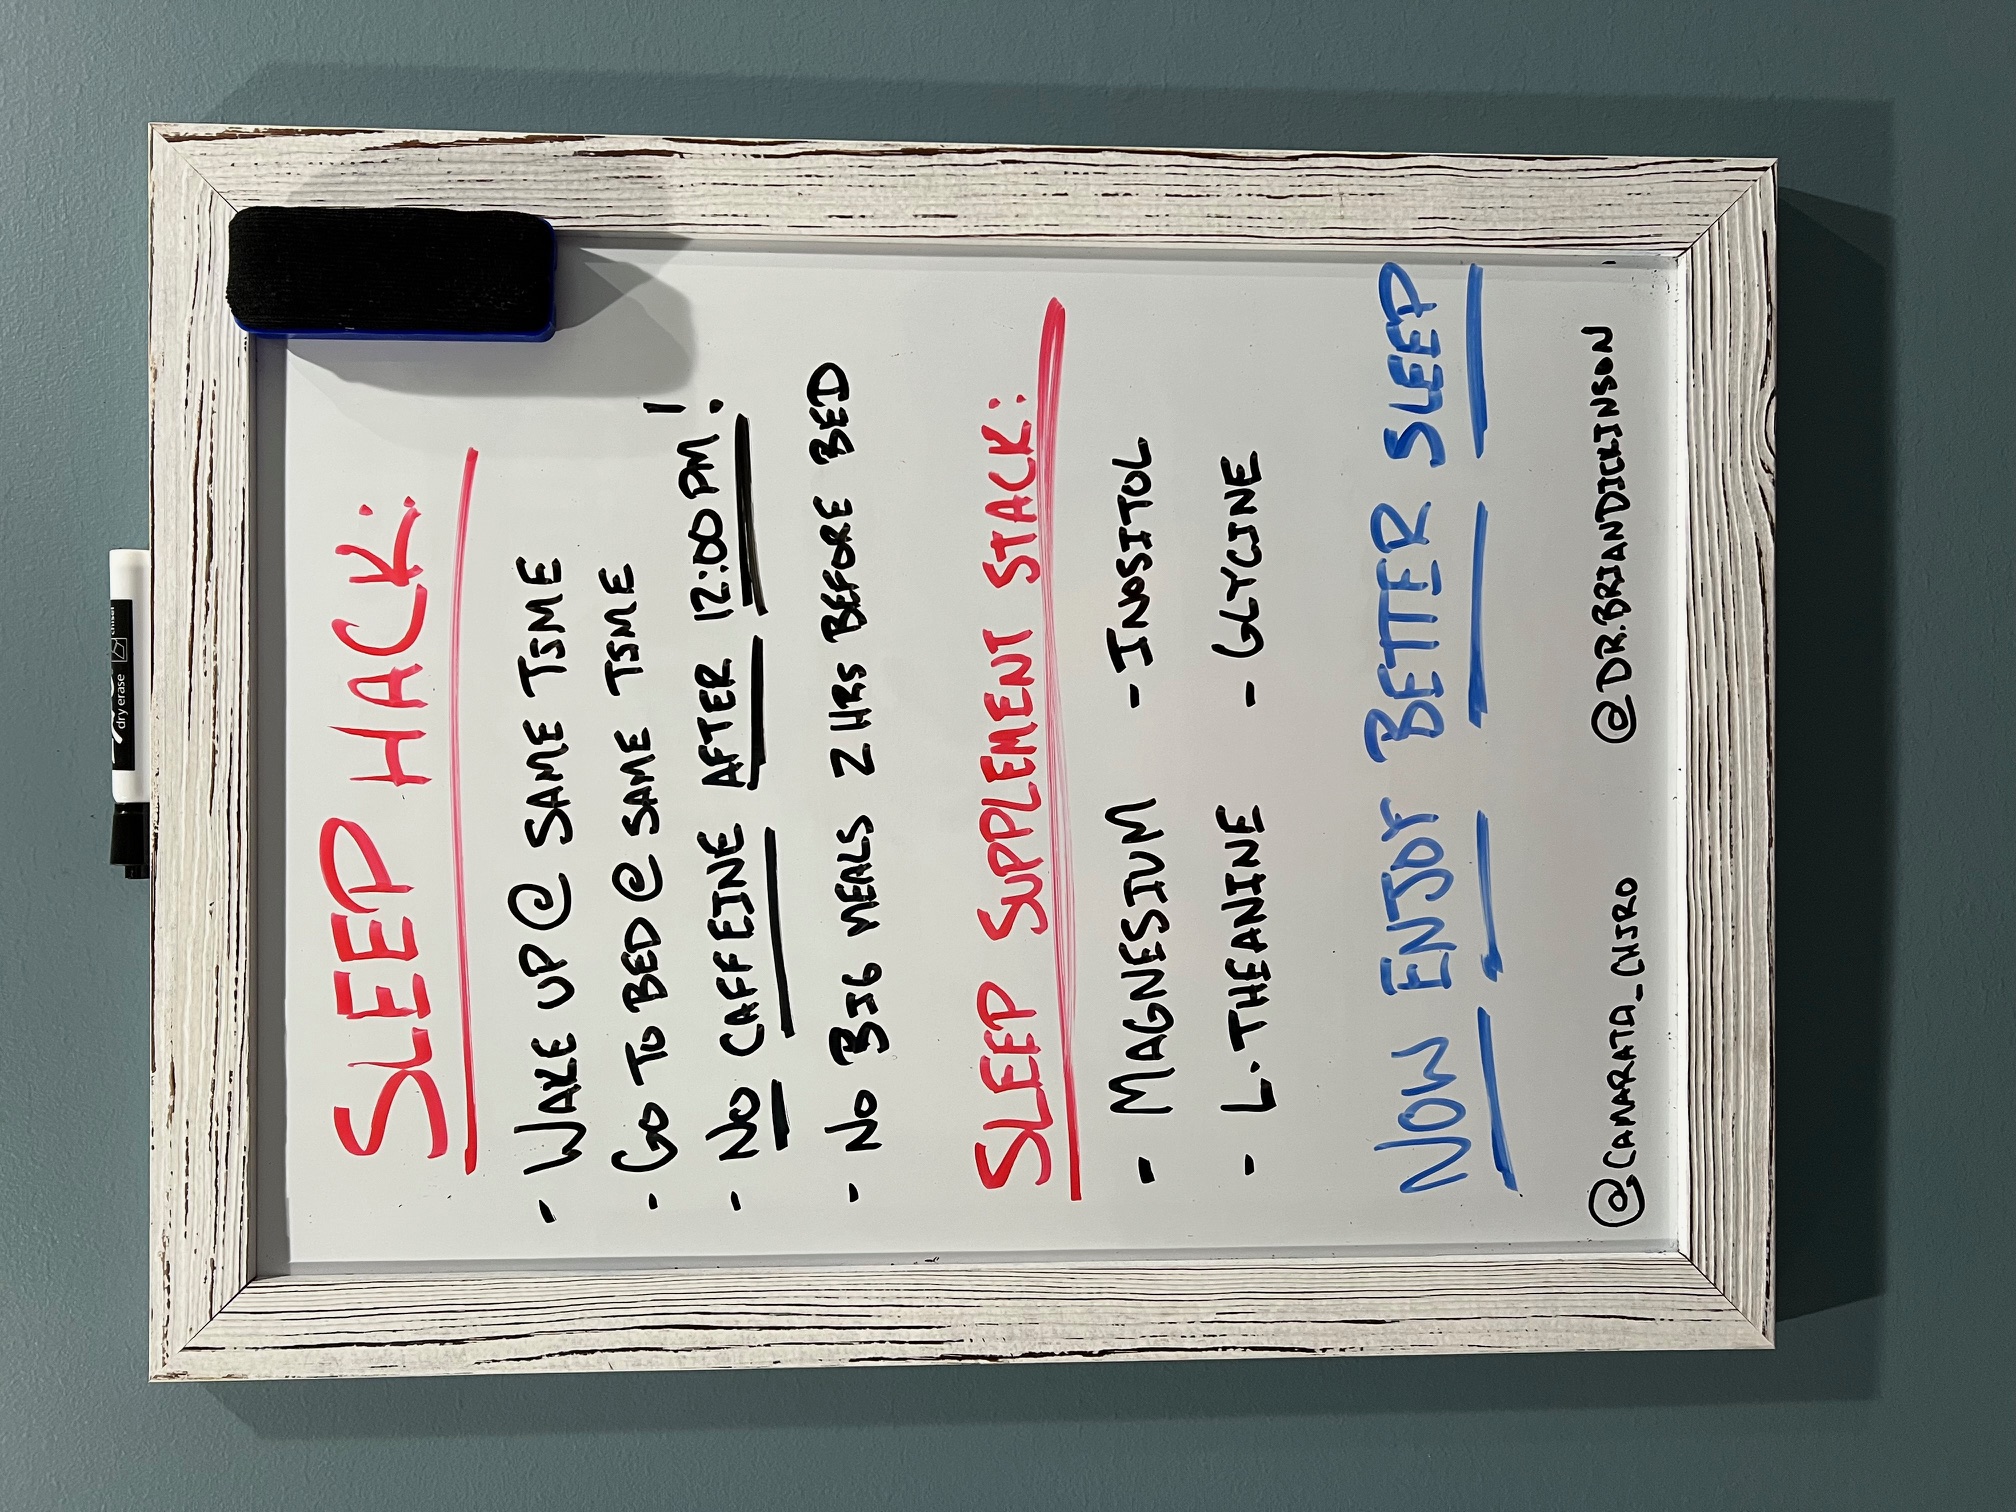 dry erase
chisel
SLEEP HACK:
- WAKE UP @ SAME TIME
- GO TO BED @ SAME TIME
- NO CAFFEINE AFTER 12:00 PM!
- NO BIG MEALS 2 HRS BEFORE BED
SLEEP SUPPLEMENT STACK:
- MAGNESIUM - INOSITOL
- L-THEANINE - GLYCINE
NOW ENJOY BETTER SLEEP
@CAMARATA_CHIRO @DR.BRIANDICKINSON